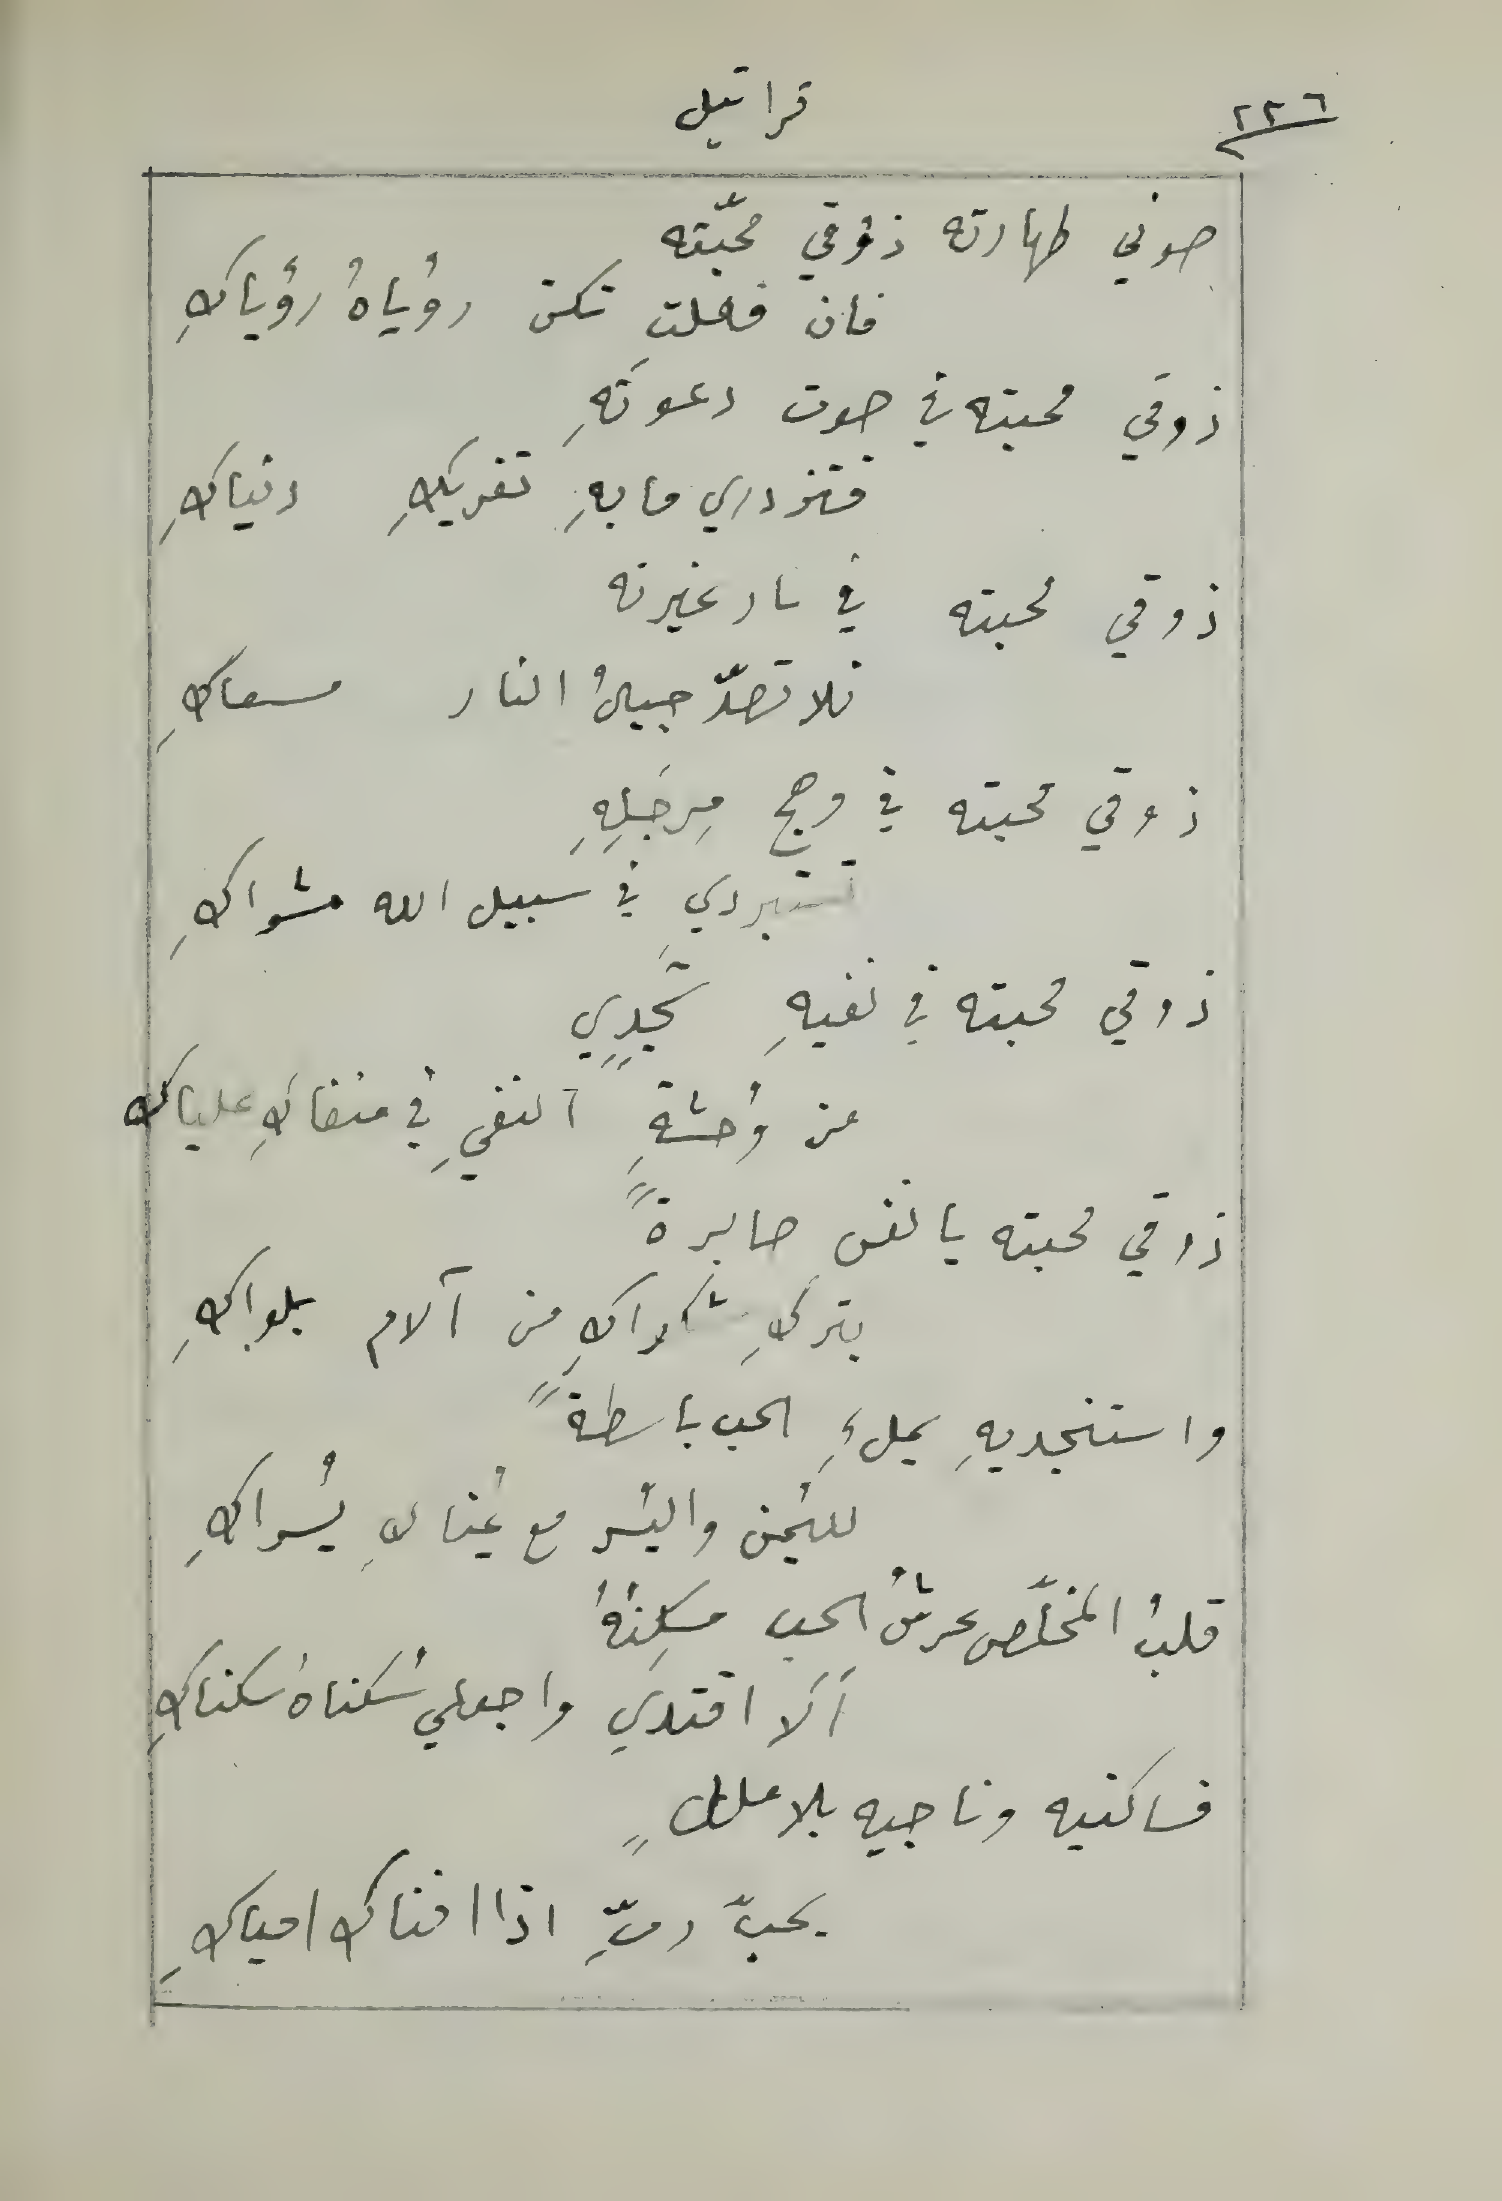 ٢٢٦
قراتيل
صوني طهارته ذوقي محبّته
فان فعلتِ تكن رؤياهُ رؤياكِ
ذوقي محبته في صوت دعوتَهِ
فتزدري ما بهِ تغريكِ دنياكِ
ذوقي محبته في نار غيرته
فلا تصدّ جبالُ النار مسعاكِ
ذوقي محبته في وهج مِرجَلِهِ
تستبردي في سبيل الله مشواكِ
ذوقي محبته في نفيهِ تَجِدِي
عن وُحشةِ النفيِ في منفاكِ علياك
ذوقي محبته يا نفس صابرةً
بتركِ شكواكِ من آلام بلواكِ
واستنجديهِ بملءِ الحب باسطةً
لليُمن واليُسر مع يُمناكِ يُسراكِ
قلبُ المخلّص عرشُ الحبِ مسكِنُهُ
أَلا اقتدي واجعلي سُكناهُ سُكناكِ
فساكنيه وناجيه بلا مللٍ
بحبّ ربٍّ اذا افناك احياكِ